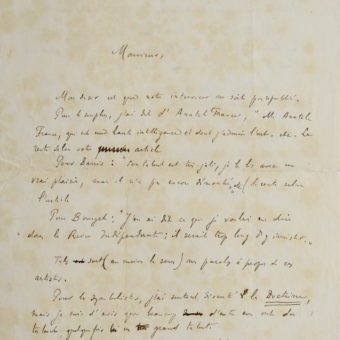 Monsieur,
Mon désir est que notre interview ne soit pas publié.
Par exemple, j'ai dit d'Anatole France, "M. Anatole
France, qui est une haute intelligence et dont j'admire l'art, etc. Le
reste selon votre article
Pour Barrès : "son talent est très joli, je le lis avec un
vrai plaisir, mais il n'a pas encore (le reste selon
l'article
Pour Bourget : "J'en ai dit ce que je voulais en dire
dans la Revue Indépendante ; il serait trop long d'y insister."
Tels sont (au moins le sens) mes paroles à propos de ces
artistes.
Pour les symbolistes, j'ai surtout discuté la Doctrine,
mais je suis d'avis que beaucoup d'entre eux ont du
talent, quelquefois un grand talent.